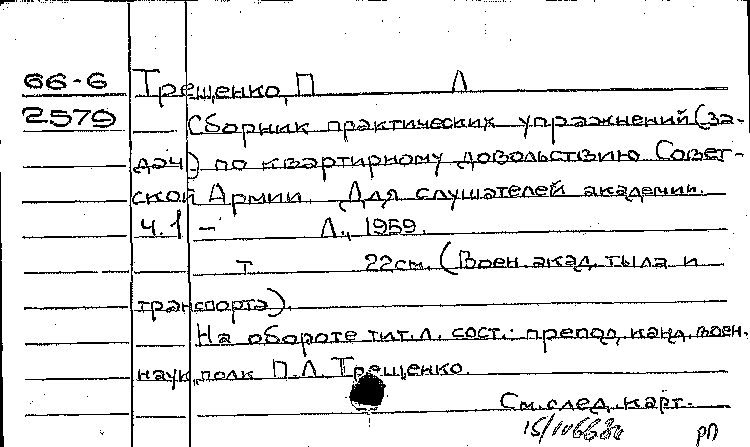 66-6 Трещенко, П Л
2579 Сборник практических упражнений (за-
дач) по квартирному довольствию Совет-
ской Армии. Для слушателей академии.
Ч.1 – Л., 1959.
т 22см. (Воен. акад. тыла и
транспорта).
На обороте тит. л. сост.: препод, канд. воен.
наук, полк П.Л. Трещенко.
См. след. карт.
РП